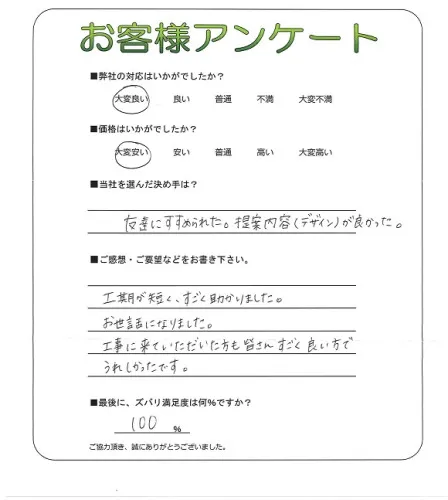 お客様アンケート
■弊社の対応はいかがでしたか？
大変良い 良い 普通 不満 大変不満
■価格はいかがでしたか？
大変安い 安い 普通 高い 大変高い
■当社を選んだ決め手は？
友達にすすめられた。提案内容(デザイン)が良かった。
■ご感想・ご要望などをお書き下さい。
工期が短く、すごく助かりました。
お世話になりました。
工事に来ていただいた方も皆さんすごく良い方で
うれしかったです。
■最後に、ズバリ満足度は何%ですか？
100 %
ご協力頂き、誠にありがとうございました。